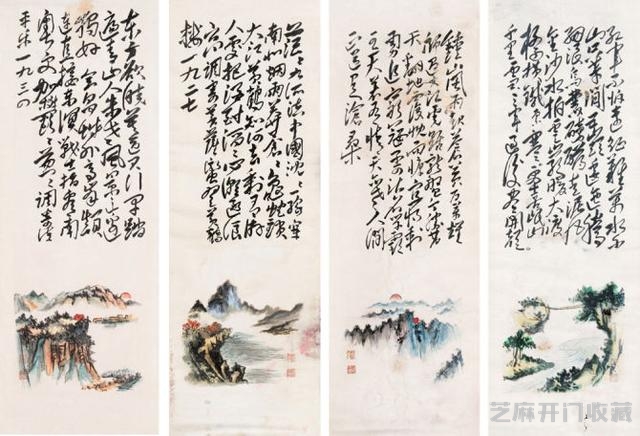 红军不怕远征难万水千
山只等闲五岭逶迤腾
细浪乌蒙磅礴走泥丸
金沙水拍云崖暖大渡
桥横铁索寒更喜岷山
千里雪三军过后尽开颜
鐘山風雨起蒼黄百万雄
師过大江虎踞龙盘今胜昔
天翻地覆慨而慷宜将剩
勇追穷寇不可沽名学霸
王天若有情天亦老人间
正道是滄桑
茫茫九派流中國沈沈一線穿
南北烟雨莽苍苍龜蛇鎖
大江黄鹤知何去剩有游
人处把酒酹滔滔心潮逐浪
高调寄菩萨蛮登黄鹤
楼一九二七
东方欲晓莫道君行早踏
遍青山人未老風景这边
独好会昌城外高峰颠
连直接东溟战士指看南
粤更加郁郁葱葱调寄清
平乐一九三四
芝麻开门收藏